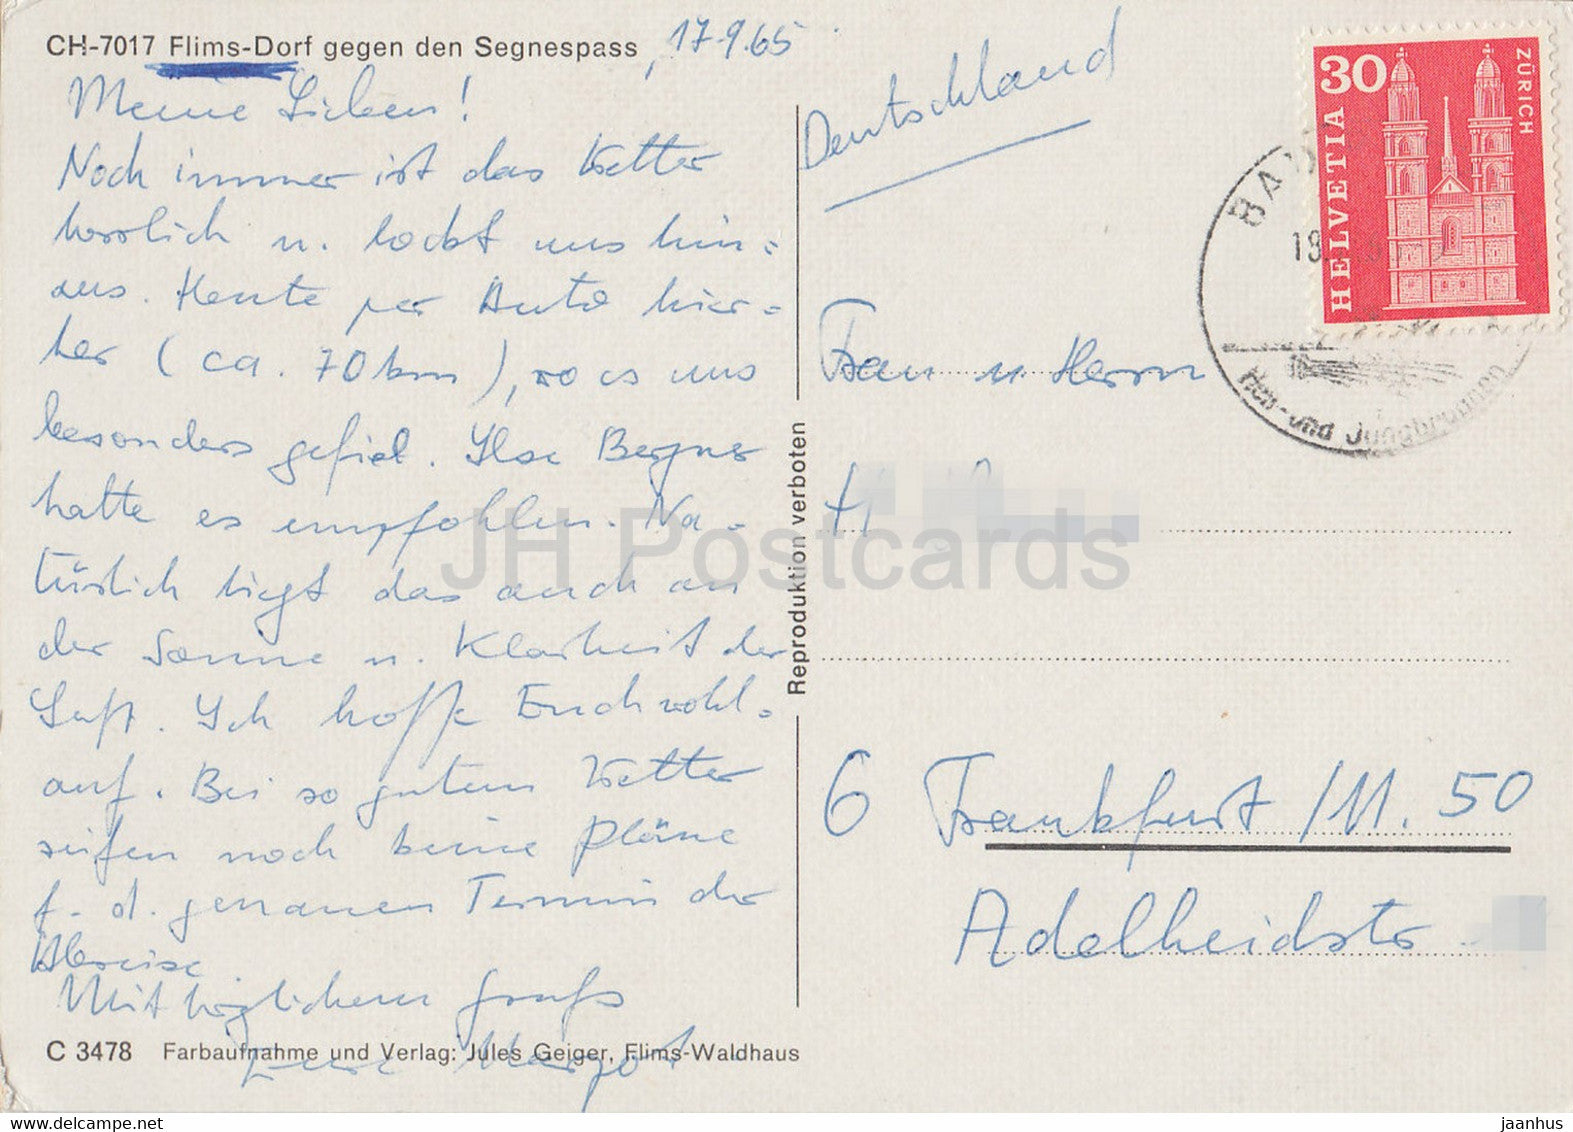 CH-7017 Flims-Dorf gegen den Segnespass, 17.9.65
Meine Lieben!
Noch immer ist das Wetter
herrlich u. lockt uns hin=
aus. Heute per Auto hier=
her (ca. 70 km), wo es uns
besonders gefiel. Ilse Bergner
hatte es empfohlen. Na=
türlich liegt das auch an
der Sonne u. Klarheit der
Luft. Ich hoffe Euch wohl=
auf. Bei so gutem Wetter
reifen noch keine Pläne
f. d. genauen Termin der
Abreise.
Mit herzlichem Gruß
Eure Margot
C 3478 Farbaufnahme und Verlag: Jules Geiger, Flims-Waldhaus
Reproduktion verboten
Deutschland
30
HELVETIA
ZÜRICH
BAD
18
und Jungbrunnen
Frau u. Herrn
H.
6 Frankfurt/M. 50
Adelheidstr.
JH Postcards
delcampe.net
jaanhus